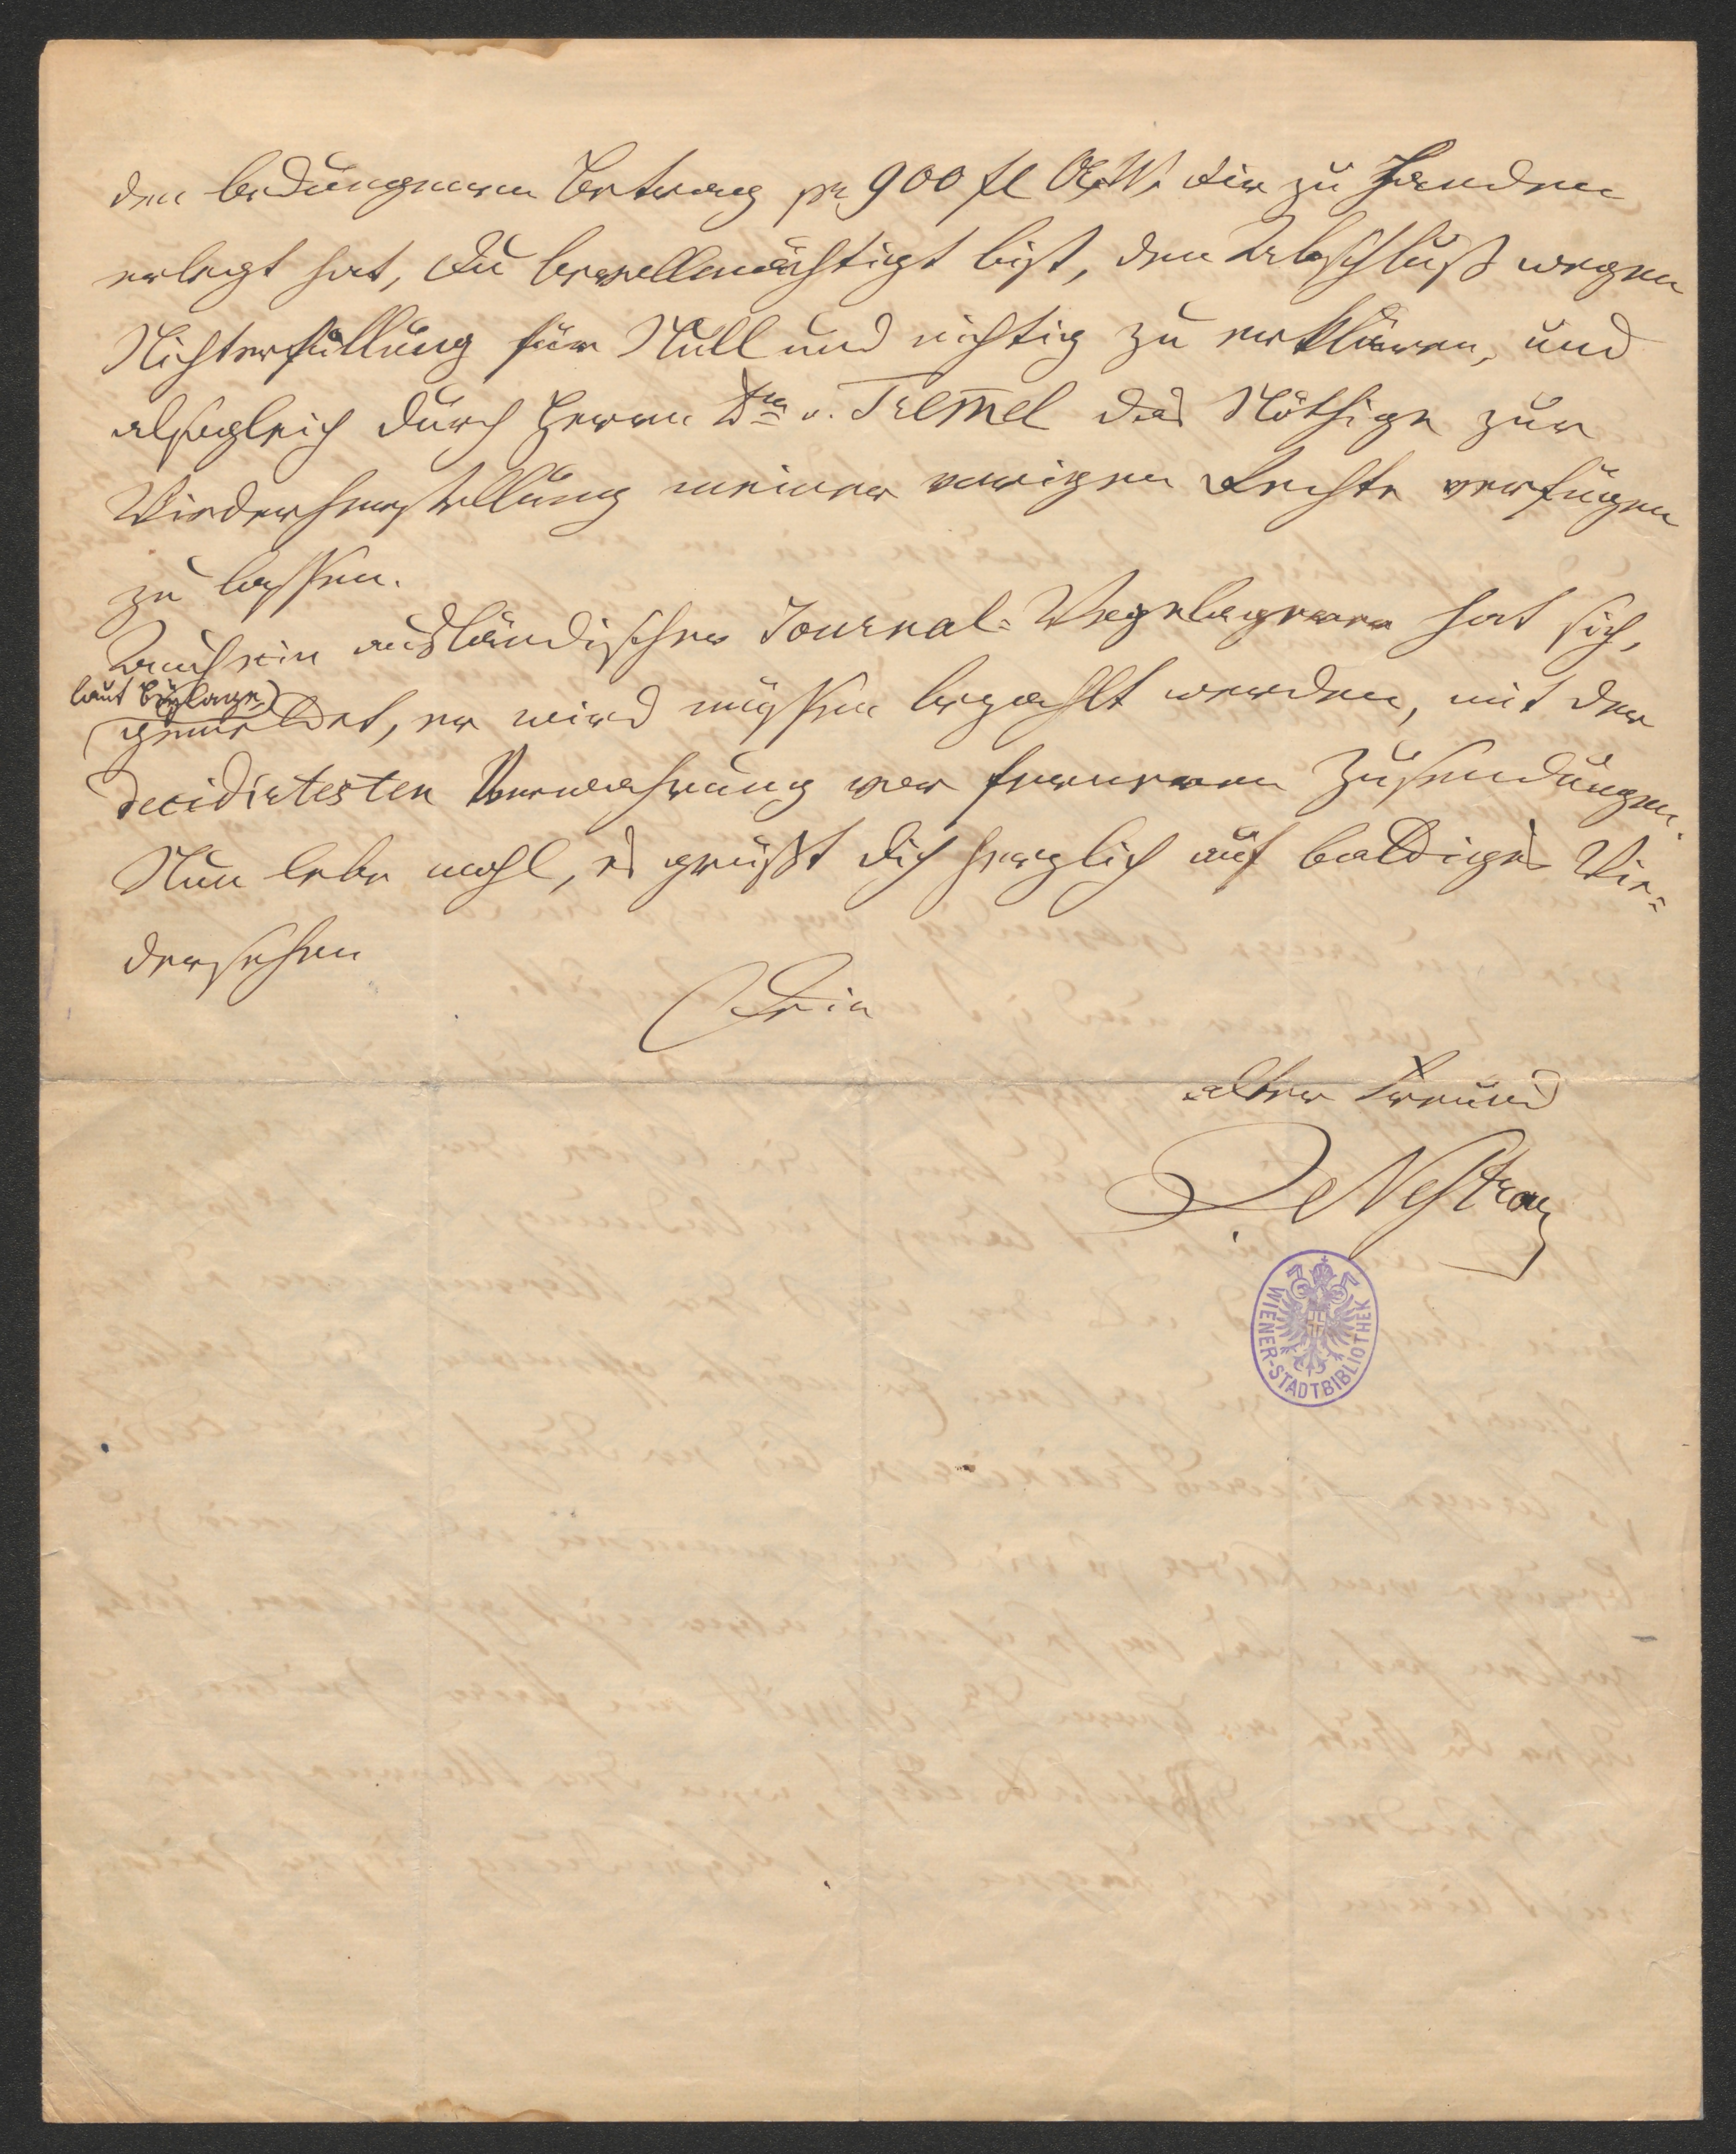 den bedungenen Betrag pr 900 fl Oe.W. Dir zu Handen
erlegt hat, Du bevollmächtigt bist, den Abschluß wegen
Nichterfüllung für Null und nichtig zu erklären, und
alsogleich durch Herrn Dr v. Tremel das Nöthige zur
Wiederherstellung meiner vorigen Rechte verfügen
zu lassen.
Auch ein ausländischer Journal-Wegelagerer hat sich,
laut Beylage
gemeldet, er wird müssen bezahlt werden, mit der
decidirtesten Verwahrung vor ferneren Zusendungen.
Nun lebe wohl, es grüßt Dich herzlich auf baldiges Wie-
dersehen
Dein
alter Freund
J Nestroy
WIENER-STADTBIBLIOTHEK